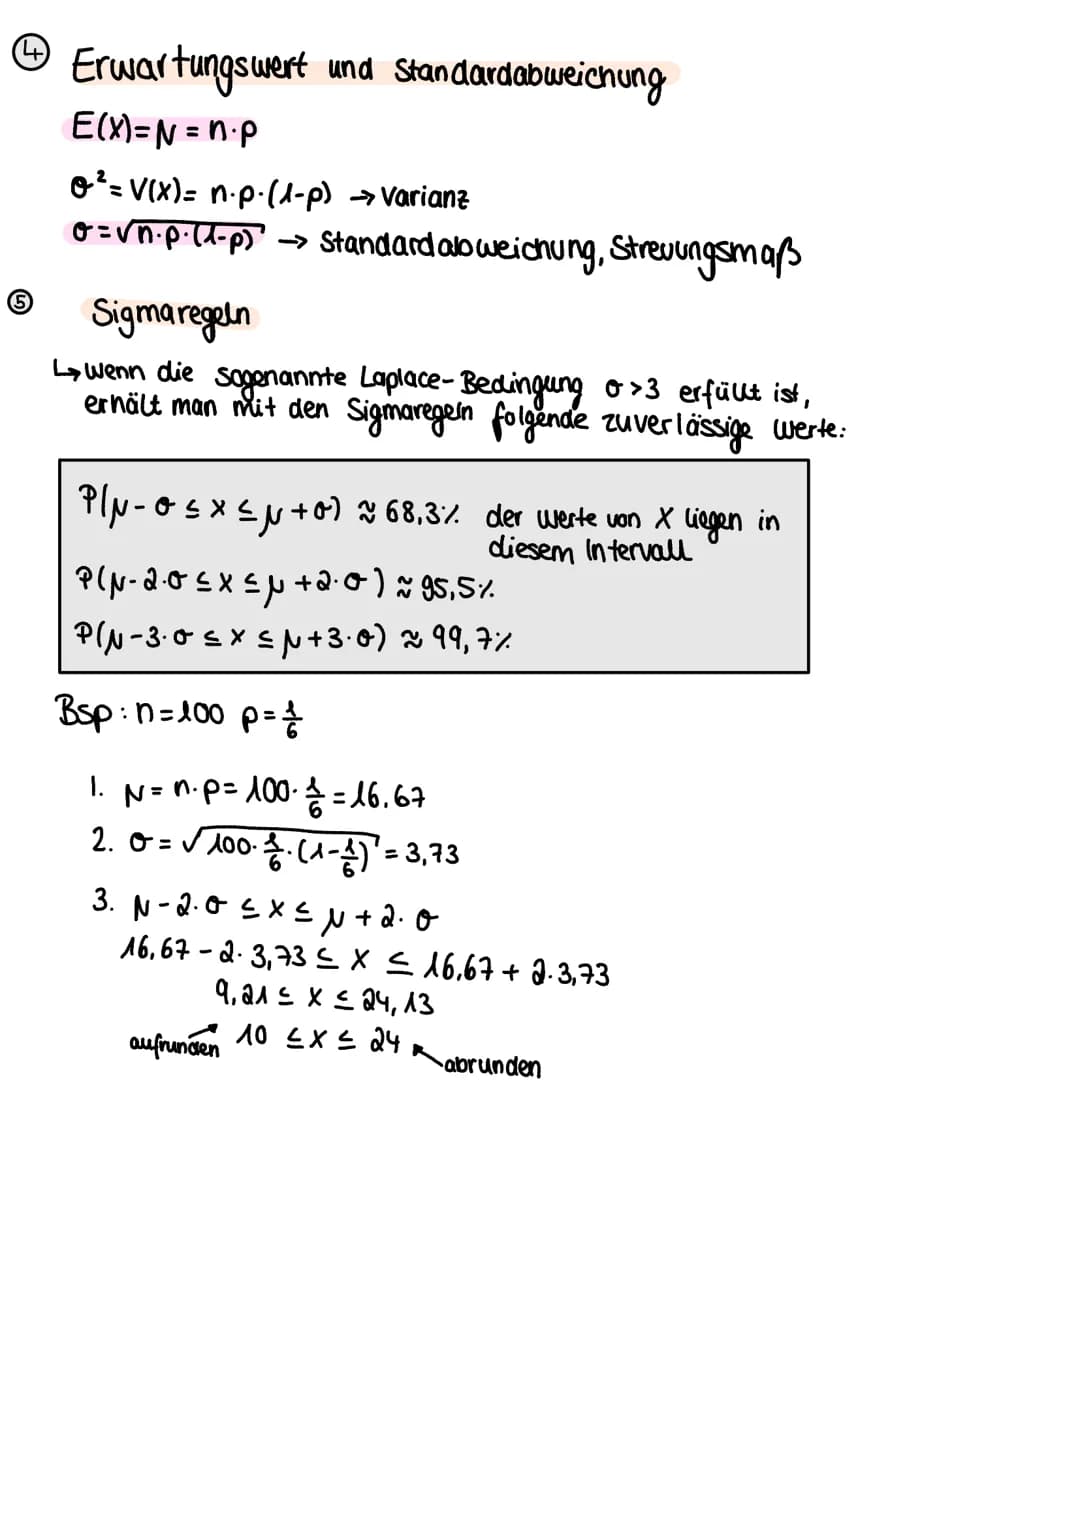 ④ Erwartungswert und Standardabweichung
E(X)=μ = n·p
σ²= V(X)= n·p·(1-p) → Varianz
σ=√n·p·(1-p) → Standardabweichung, Streuungsmaß
⑤ Sigmaregeln
↳ wenn die sogenannte Laplace-Bedingung σ>3 erfüllt ist,
erhält man mit den Sigmaregeln folgende zuverlässige Werte:
P(μ-σ ≤ X ≤ μ+σ) ≈ 68,3% der Werte von X liegen in
diesem Intervall
P(μ-2·σ ≤ X ≤ μ+2·σ) ≈ 95,5%
P(μ-3·σ ≤ X ≤ μ+3·σ) ≈ 99,7%
Bsp: n=100 p=1/6
1. μ = n·p= 100·1/6 = 16,67
2. σ = √100·1/6·(1-1/6) = 3,73
3. μ-2·σ ≤ X ≤ μ+2·σ
16,67 - 2·3,73 ≤ X ≤ 16,67 + 2·3,73
9,21 ≤ X ≤ 24,13
aufrunden 10 ≤ X ≤ 24 abrunden